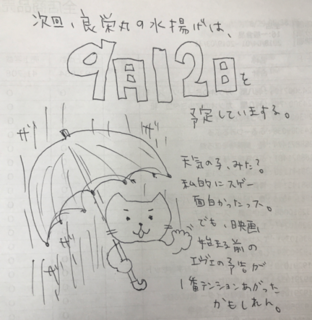 次回、良栄丸の水揚げは、
9月12日を
予定しています。
ザ
ザ
ザ
ザ
天気の子、みた?
私的にスゲー
面白かったっス。
でも、映画
始まる前の
エヴァの予告が
1番テンションあがった
かもしれん。